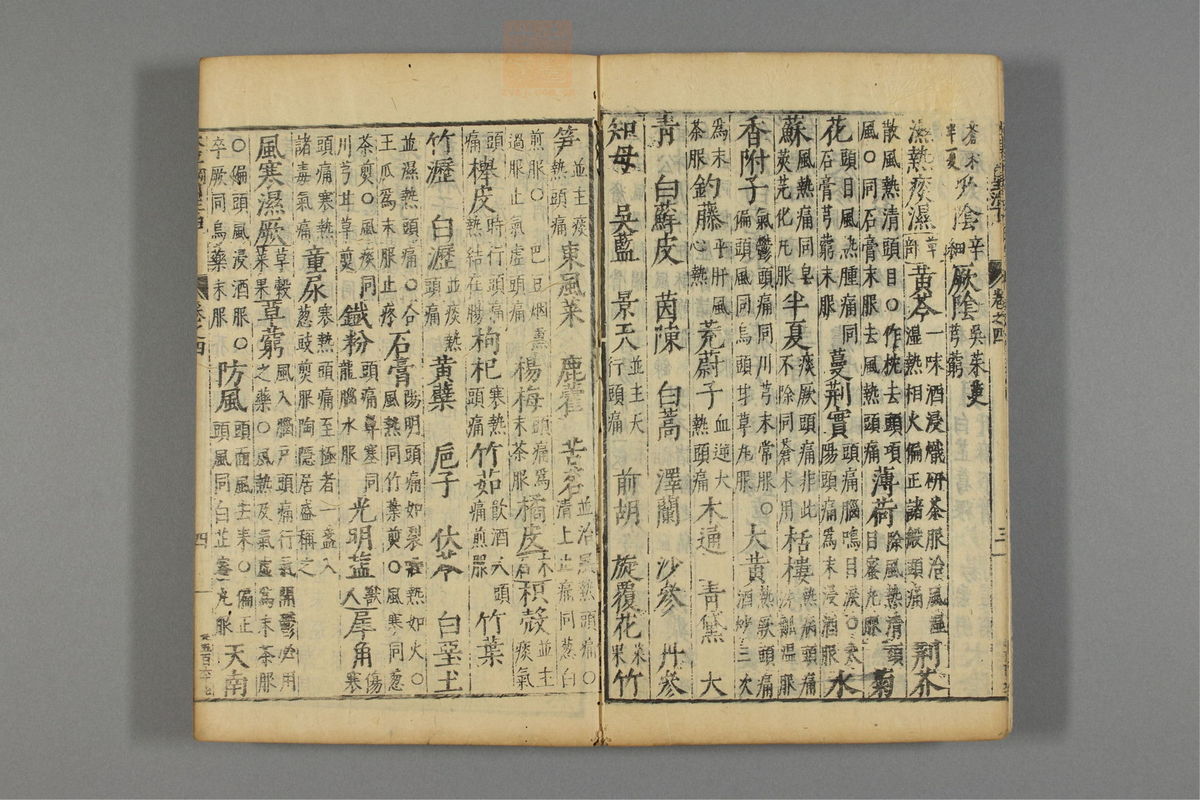 蒼朮半夏少陰辛細厥陰吳茱萸芎藭
濕熱痰濕草部黃芩一味酒浸曬研茶服治風濕濕熱相火偏正諸般頭痛荊芥
散風熱清頭目〇作枕去頭項風〇同石膏末服去風熱頭痛薄荷除風熱清頭目蜜丸服菊
花頭目風熱腫痛同石膏芎藭末服蔓荊實頭痛腦鳴目淚〇太陽頭痛爲末浸酒服水
蘇風熱痛同皂莢芫花丸服半夏痰厥頭痛非此不除同蒼朮用栝樓熱病頭痛洗瓤溫服
香附子氣鬱頭痛同川芎末常服〇偏頭風同烏頭甘草丸服大黃熱厥頭痛酒炒三次
爲末茶服釣藤平肝風心熱茺蔚子血逆大熱頭痛木通 青黛 大
青 白蘇皮 茵陳 白蒿 澤蘭 沙參 丹參
知母 吳藍 景天並主天行頭痛前胡 旋覆花菜果竹
卷之四 三
筍並主痰熱頭痛東風菜 鹿藿 苦茗並治風熱頭痛〇清上止痛同蔥白
煎服〇巴豆烟熏過服止氣虛頭痛楊梅頭痛爲末茶服橘皮 枳殼並主痰氣
頭痛櫸皮時行頭痛熱結在腸枸杞寒熱頭痛竹茹飲酒人頭痛煎服竹葉
竹瀝 白瀝並痰熱頭痛黃蘗 巵子 茯苓 白堊土
並濕熱頭痛〇合王瓜爲末服止疼石膏陽明頭痛如裂壯熱如火〇風熱同竹葉煎〇風寒同蔥
茶煎〇風痰同川芎甘草煎鐵粉頭痛鼻塞同龍腦水服光明鹽 人獸犀角傷寒
頭痛寒熱諸毒氣痛童尿寒熱頭痛至極者一盞入蔥豉煎服陶隱居盛稱之
風寒濕厥草穀菜果芎藭風入腦戶頭痛行氣開鬱必用之藥〇風熱及氣虛爲末茶服
〇偏頭風浸酒服〇卒厥同烏藥末服防風頭面風去來〇偏正頭風同白芷蜜丸服天南
卷之四 四